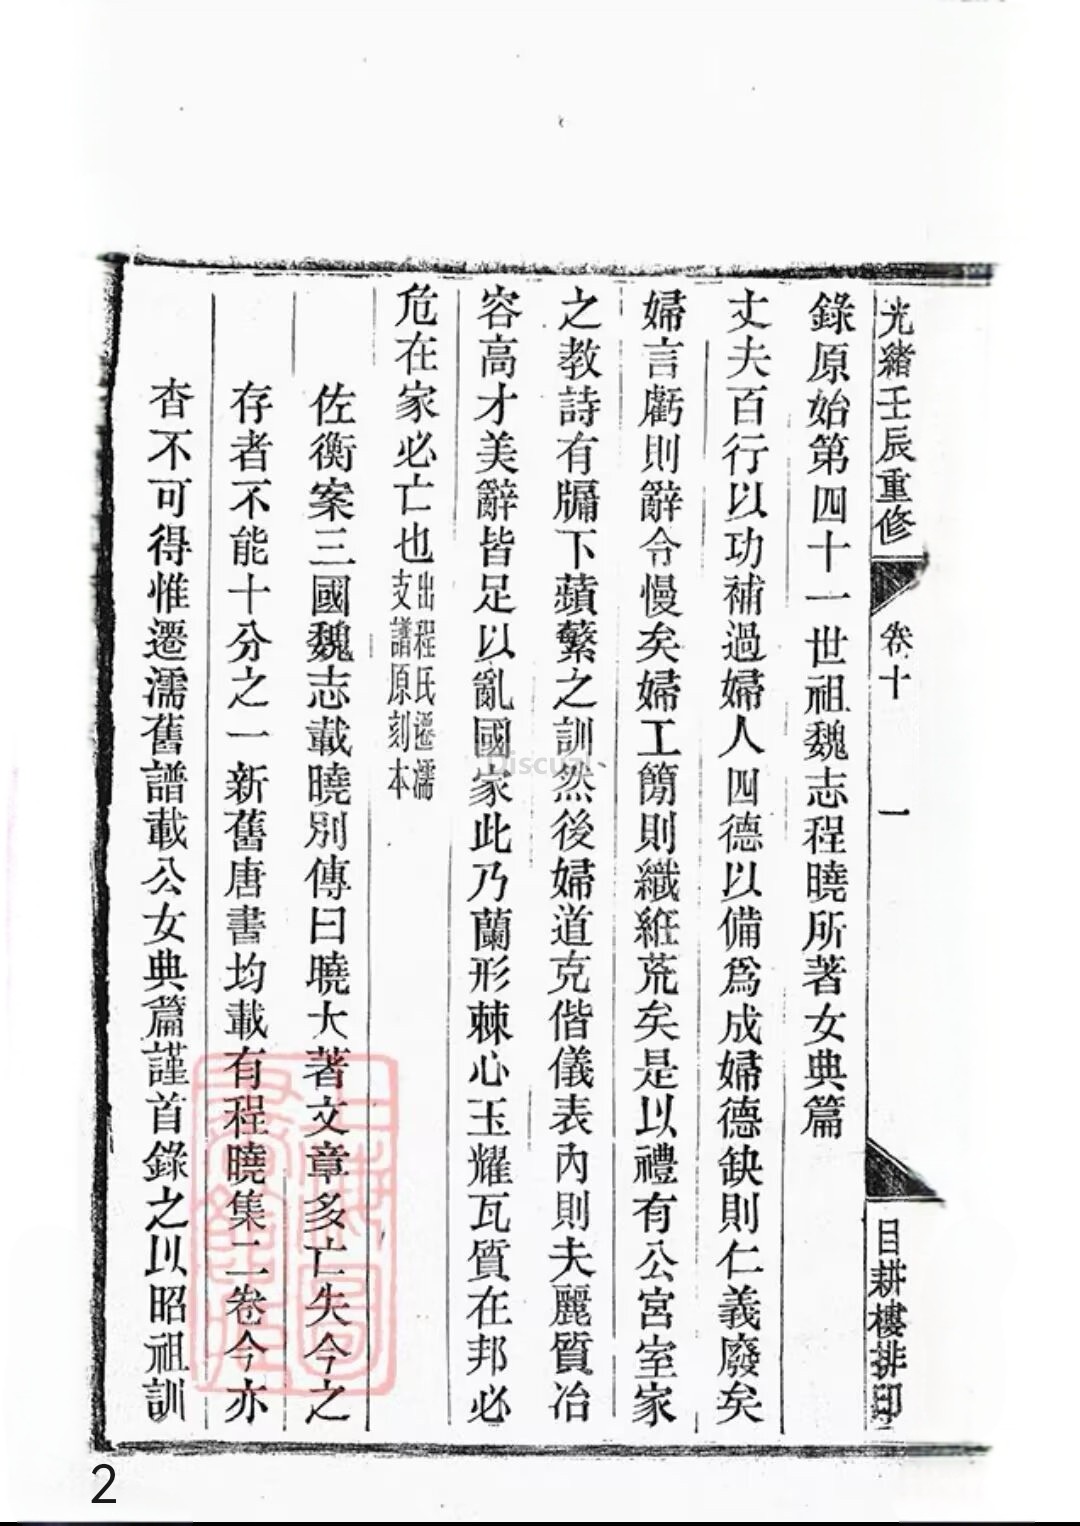 光緒壬辰重修
卷十
一
目耕樓排印
錄原始第四十一世祖魏志程曉所著女典篇
丈夫百行以功補過婦人四德以備爲成婦德缺則仁義廢矣
婦言虧則辭令慢矣婦工簡則織紝荒矣是以禮有公宮室家
之教詩有牖下蘋蘩之訓然後婦道克偕儀表內則夫麗質冶
容高才美辭皆足以亂國家此乃蘭形棘心玉耀瓦質在邦必
危在家必亡也
出程氏遷濡
支譜原刻本
佐衡案三國魏志載曉別傳曰曉大著文章多亡失今之
存者不能十分之一新舊唐書均載有程曉集二卷今亦
杳不可得惟遷濡舊譜載公女典篇謹首錄之以昭祖訓
上海圖
書館藏
Discuz!
2